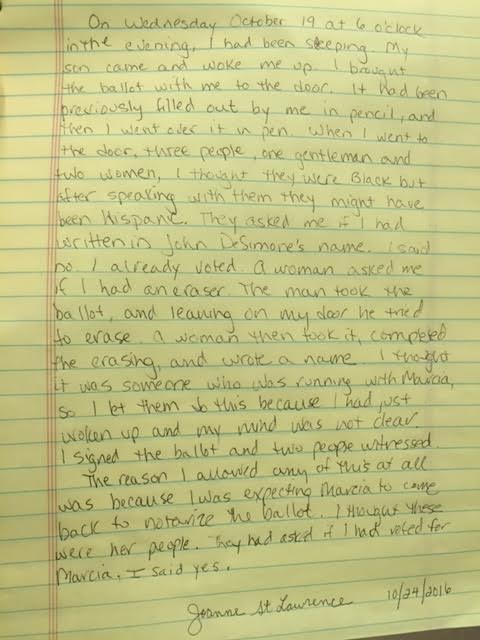 On Wednesday October 19 at 6 o'clock
in the evening, I had been sleeping. My
son came and woke me up. I brought
the ballot with me to the door. It had been
previously filled out by me in pencil, and
then I went over it in pen. When I went to
the door, three people, one gentleman and
two women, I thought they were Black but
after speaking with them they might have
been Hispanic. They asked me if I had
written in John DeSimone's name. I said
no. I already voted. A woman asked me
if I had an eraser. The man took the
ballot, and leaning on my door he tried
to erase. A woman then took it, completed
the erasing, and wrote a name. I thought
it was someone who was running with Marcia,
so I let them do this because I had just
woken up and my mind was not clear.
I signed the ballot and two people witnessed.
The reason I allowed any of this at all
was because I was expecting Marcia to come
back to notarize the ballot. I thought these
were her people. They had asked if I had voted for
Marcia. I said yes.
Joanne St Lawrence 10/24/2016